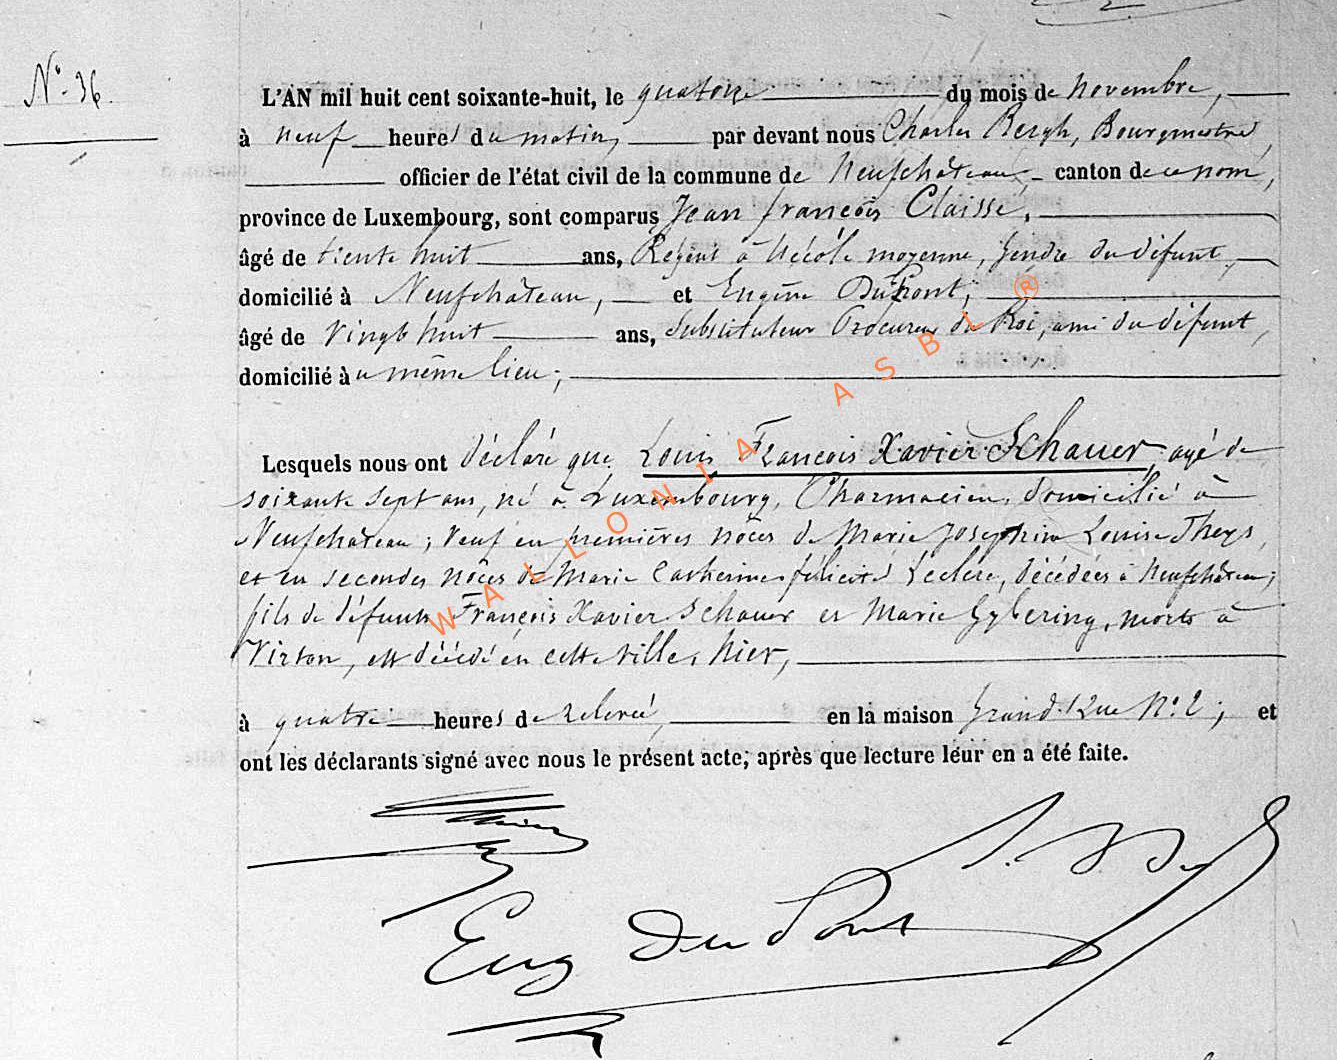 N° 36
L'AN mil huit cent soixante-huit, le quatorze du mois de Novembre,
à neuf heures du matin, par devant nous Charles Bergh, Bourgmestre,
officier de l'état civil de la commune de Neufchâteau, canton de ce nom,
province de Luxembourg, sont comparus Jean françois Claisse,
âgé de trente huit ans, Régent à l'école moyenne, gendre du défunt,
domicilié à Neufchâteau, et Eugène DuPont,
âgé de vingt huit ans, Substitut du Procureur du Roi, ami du défunt,
domicilié au même lieu;
Lesquels nous ont déclaré que Louis François Xavier Schauer agé de
soixante sept ans, né à Luxembourg, Pharmacien, domicilié à
Neufchâteau; Veuf en premières nôces de Marie Josephine Louise Theys
et en secondes nôces de Marie Catherine félicité Leclere, décédées à Neufchâteau;
fils de défunts François Xavier Schauer et Marie Gybering, morts à
Virton, est décédé en cette ville, hier,
à quatre heures de relevée, en la maison Grand'Rue N° 2; et
ont les déclarants signé avec nous le présent acte, après que lecture leur en a été faite.
Eug Du Pont
WALLONIA ASBL ®